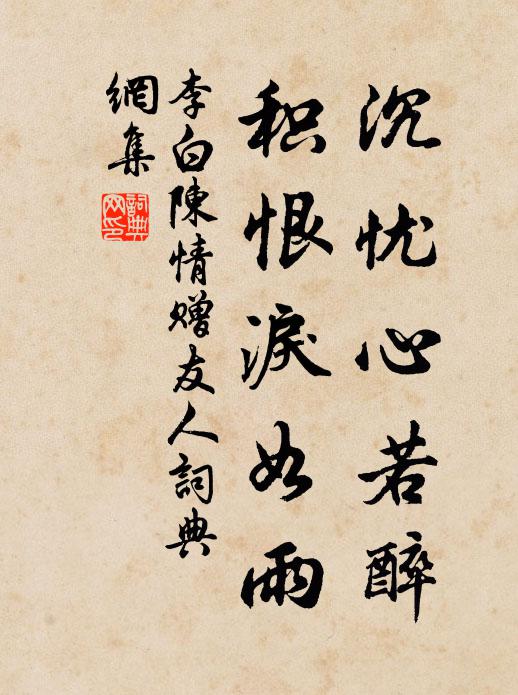 沉忧心若醉
积恨淚如雨
李白陳情贈友人詞典
網集
詞典網印